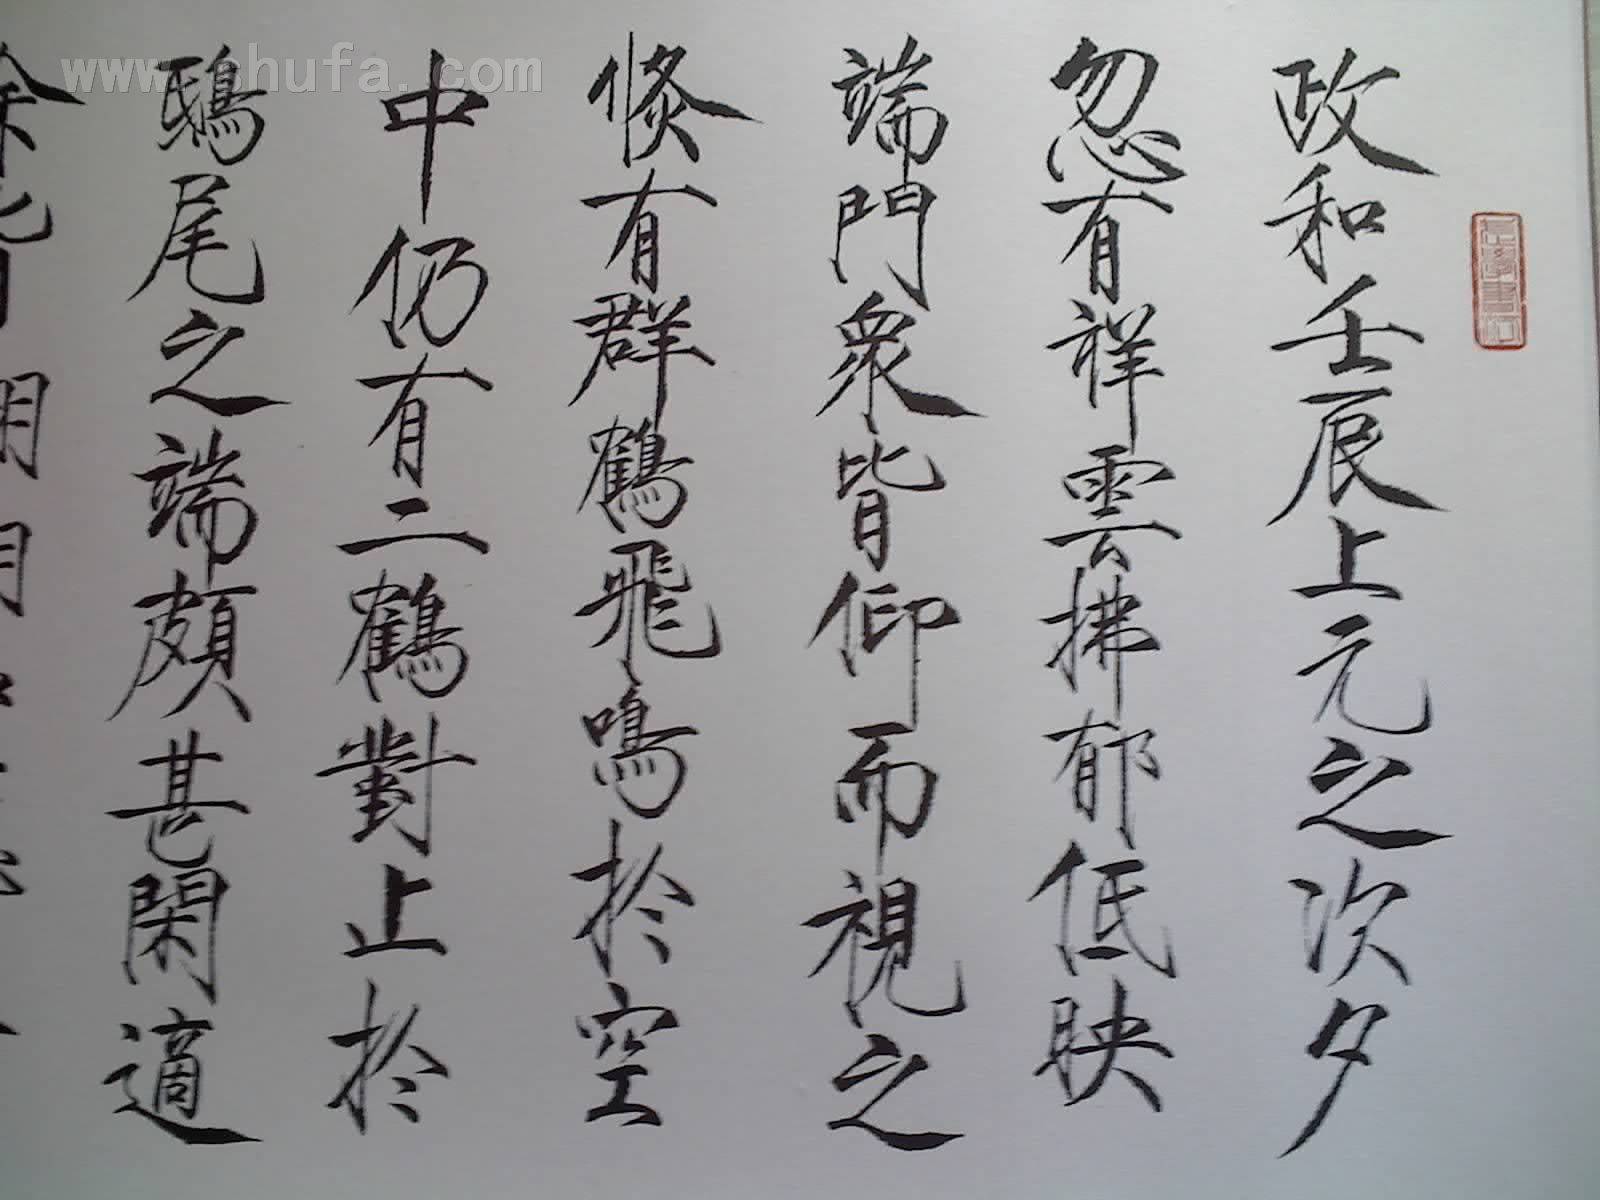 政和壬辰上元之次夕
忽有祥雲拂郁低映
端門衆皆仰而視之
倐有群鶴飛鳴於空
中仍有二鶴對止於
鴟尾之端頗甚閑適
餘皆
www.shufa.com